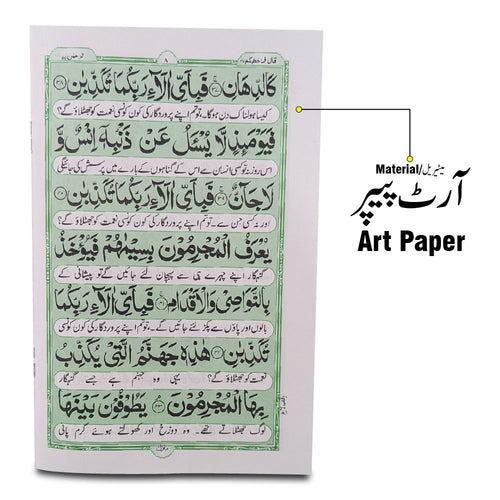 قال فما خطبکم ۲۷
۸
الرحمٰن ۵۵
كَالدِّهَانِ ۝ فَبِاَىِّ اٰلَآءِ رَبِّكُمَا تُكَذِّبٰنِ ۝
کیسا ہولناک دن ہوگا۔ تو تم اپنے پروردگار کی کون کونسی نعمت کو جھٹلاؤ گے؟
فَيَوْمَئِذٍ لَّا يُسْـَٔلُ عَنْ ذَنْۢبِهٖٓ اِنْسٌ وَّ
اس روز نہ تو کسی انسان سے اس کے گناہوں کے بارے میں پرسش کی جائیگی
لَا جَآنٌّ ۝ فَبِاَىِّ اٰلَآءِ رَبِّكُمَا تُكَذِّبٰنِ ۝
اور نہ کسی جن سے۔ تو تم اپنے پروردگار کی کون کونسی نعمت کو جھٹلاؤ گے؟
يُعْرَفُ الْمُجْرِمُوْنَ بِسِيْمٰهُمْ فَيُؤْخَذُ
گنہگار اپنے چہرے ہی سے پہچان لئے جائیں گے تو پیشانی کے
بِالنَّوَاصِىْ وَالْاَقْدَامِ ۝ فَبِاَىِّ اٰلَآءِ رَبِّكُمَا
بالوں اور پاؤں سے پکڑ لئے جائیں گے۔ تو تم اپنے پروردگار کی کون کونسی
تُكَذِّبٰنِ ۝ هٰذِهٖ جَهَنَّمُ الَّتِىْ يُكَذِّبُ
نعمت کو جھٹلاؤ گے؟ یہی وہ جہنم ہے جسے گنہگار
بِهَا الْمُجْرِمُوْنَ ۝ يَطُوْفُوْنَ بَيْنَهَا
لوگ جھٹلاتے تھے۔ وہ دوزخ اور کھولتے ہوئے گرم پانی
Material/میٹیریل
آرٹ پیپر
Art Paper